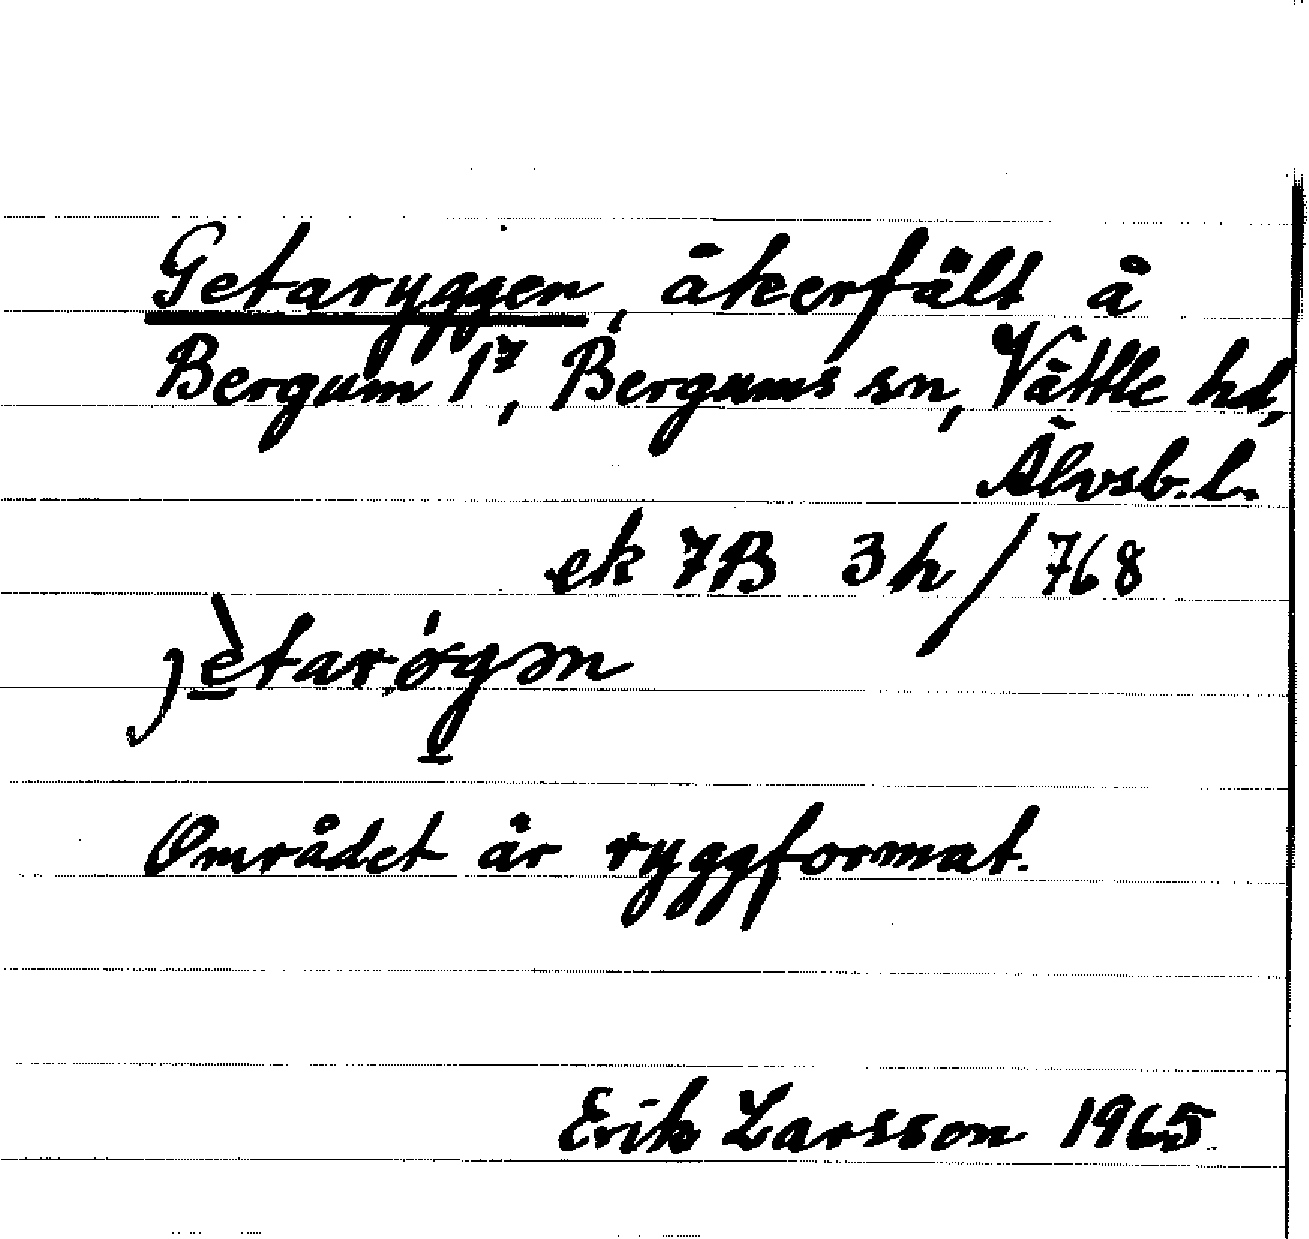 Getaryggen, åkerfält å
Bergum 1⁷, Bergums sn, Vättle hd,
Älvsb. l.
ek 7B 3h/768
Området är ryggformat.
Erik Larsson 1965